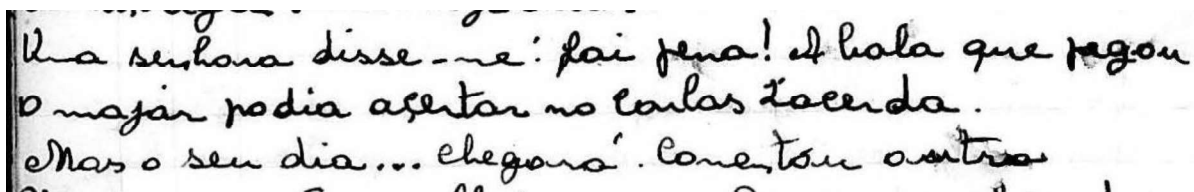 Uma senhora disse-me: foi pena! A bala que pegou
o major podia açertar no Carlos Lacerda.
Mas o seu dia... chegará. Comentou outra